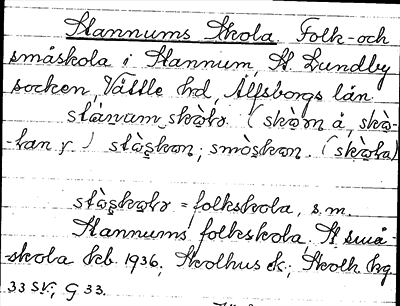 Stannums Skola Folk- och
småskola i Stannum, St. Lundby
socken, Vättle hd, Älfsborgs län.
stànum skòlo (skòm å, skò-
-lan r) stòskon; smòskon. (skòla)
stòskolo = folkskola, s.m.
Stannums folkskola. St små-
-skola keb. 1936; Skolhus ek; Skolh. kg
33 SV; G 33.